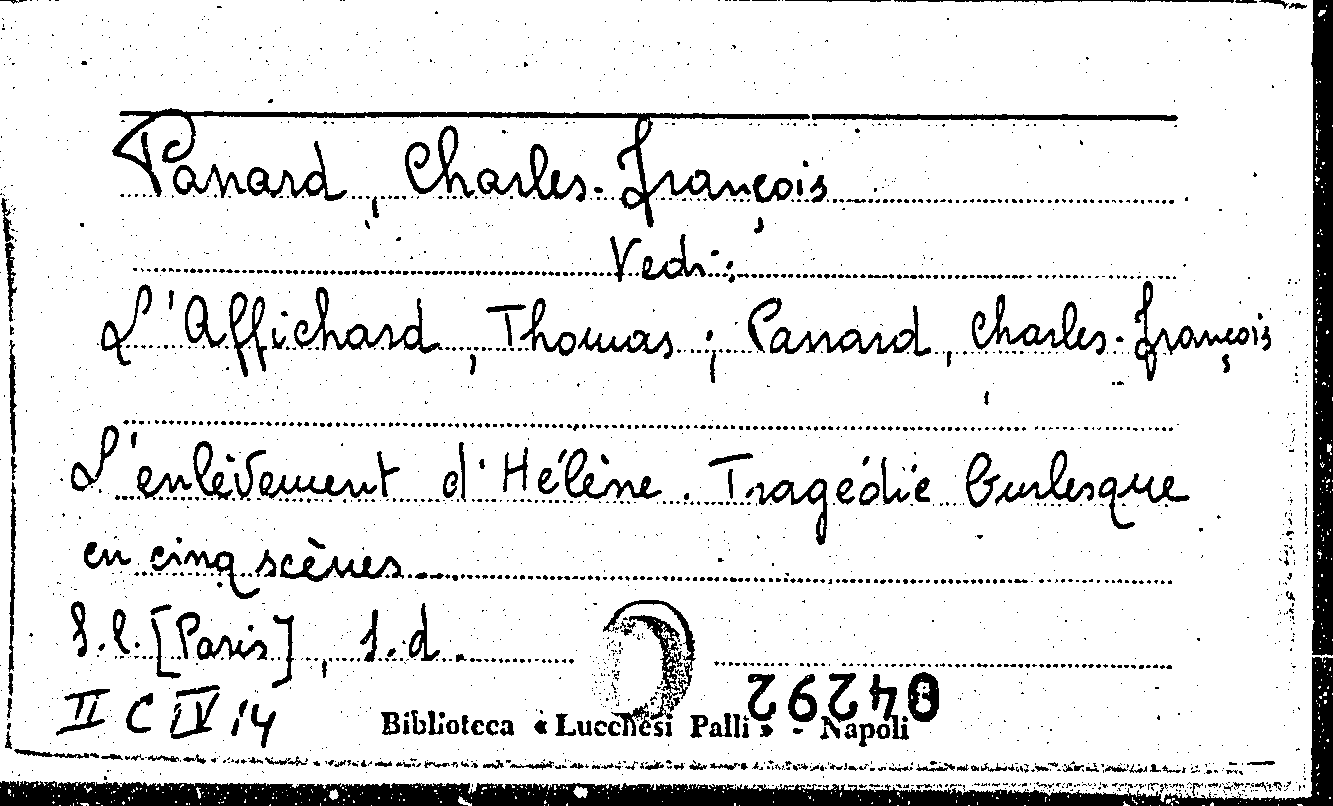 Panard, Charles-François
Vedi:
L'Affichard, Thomas; Panard, Charles-François
L'enlèvement d'Hélène. Tragédie burlesque
en cinq scènes.
S.l. [Paris], s.d.
II C IV 14
04292
Biblioteca « Lucchesi Palli » - Napoli